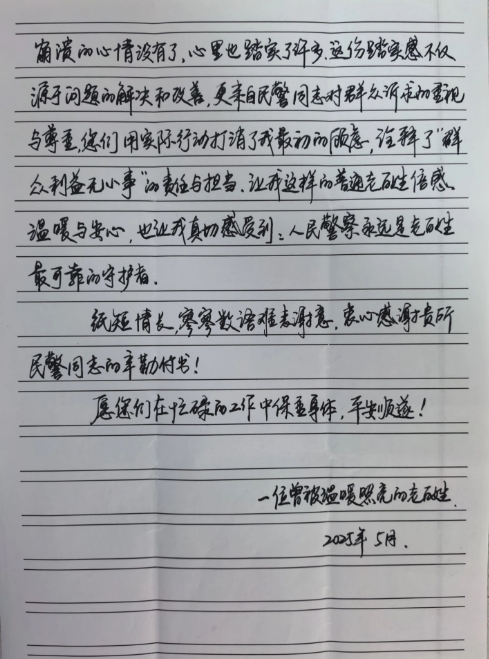 崩溃的心情没有了，心里也踏实了许多。这份踏实感不仅
源于问题的解决和改善，更来自民警同志对群众诉求的重视
与尊重，您们用实际行动打消了我最初的顾虑，诠释了“群
众利益无小事”的责任与担当，让我这样的普通老百姓倍感
温暖与安心，也让我真切感受到：人民警察永远是老百姓
最可靠的守护者。
纸短情长，寥寥数语难表谢意，衷心感谢贵所
民警同志的辛勤付出！
愿您们在忙碌的工作中保重身体，平安顺遂！
一位曾被温暖照亮的老百姓
2025年5月.